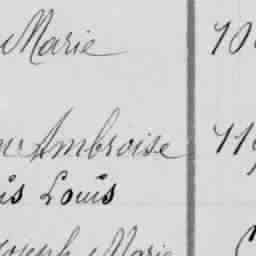 Marie 70
Ambroise 11
is Louis
Joseph Marie